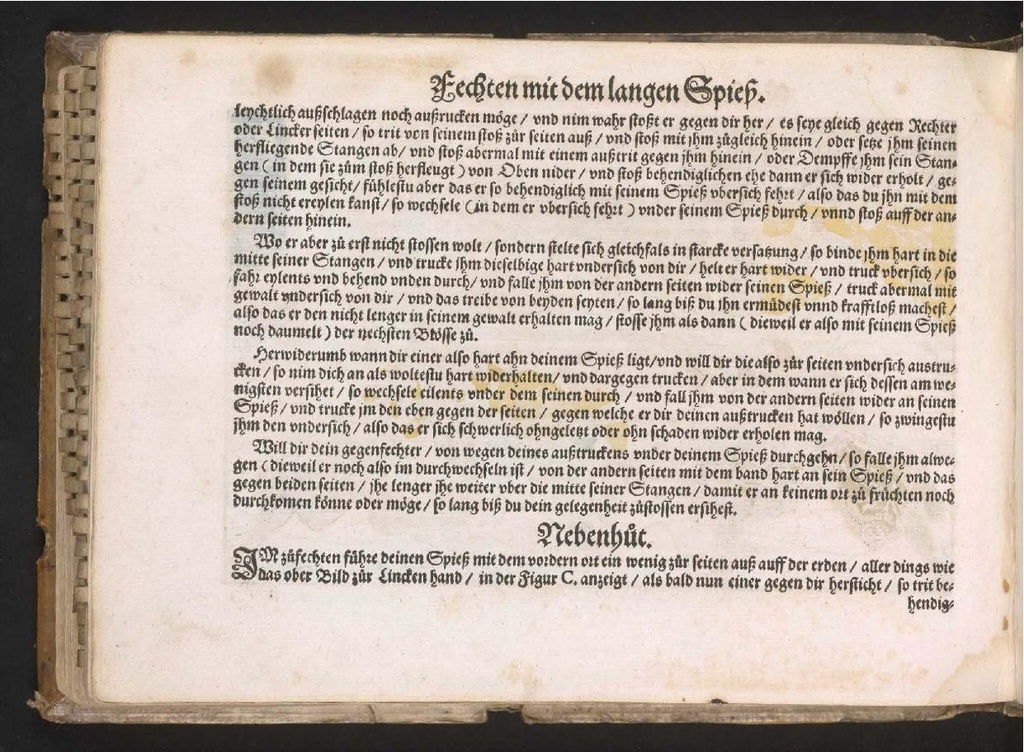 Fechten mit dem langen Spieß.
leychtlich außschlagen noch außrucken möge / vnd nim wahr stoßt er gegen dir her / es seye gleich gegen Rechter
oder Lincker seiten / so trit von seinem stoß zůr seiten auß / vnd stoß mit jhm zůgleich hinein / oder setze jhm seinen
herfliegende Stangen ab / vnd stoß abermal mit einem außtrit gegen jhm hinein / oder Dempffe jhm sein Stan-
gen ( in dem sie zům stoß herfleugt ) von Oben nider / vnd stoß behendiglichen ehe dann er sich wider erholt / ge-
gen seinem gesicht / fühlestu aber das er so behendiglich mit seinem Spieß vbersich fehrt / also das du jhn mit dem
stoß nicht ereylen kanst / so wechsele ( in dem er vbersich fehrt ) vnder seinem Spieß durch / vnnd stoß auff der an-
dern seiten hinein.
Wo er aber zů erst nicht stossen wolt / sondern stelte sich gleichfals in starcke versatzung / so binde jhm hart in die
mitte seiner Stangen / vnd trucke jhm dieselbige hart vndersich von dir / helt er hart wider / vnd truckt vbersich / so
fahr eylents vnd behend vnden durch / vnd falle jhm von der andern seiten wider seinen Spieß / truck abermal mit
gewalt vndersich von dir / vnd das treibe von beyden seyten / so lang biß du jhn ermüdest vnnd krafftloß machest /
also das er den nicht lenger in seinem gewalt erhalten mag / stosse jhm als dann ( dieweil er also mit seinem Spieß
noch daumelt ) der nechsten Blösse zů.
Herwiderumb wann dir einer also hart ahn deinem Spieß ligt / vnd will dir die also zůr seiten vndersich austru-
cken / so nim dich an als woltestu hart widerhalten / vnd dargegen trucken / aber in dem wann er sich dessen am we-
nigsten versihet / so wechsele eilents vnder dem seinen durch / vnd fall jhm von der andern seiten wider an seinen
Spieß / vnd trucke jn den eben gegen der seiten / gegen welche er dir deinen außtrucken hat wöllen / so zwingestu
jhm den vndersich / also das er sich schwerlich ohngeletzt oder ohn schaden wider erholen mag.
Will dir dein gegenfechter / von wegen deines außtruckens vnder deinem Spieß durchgehn / so falle jhm alwe-
gen ( dieweil er noch also im durchwechseln ist / von der andern seiten mit dem band hart an sein Spieß / vnd das
gegen beiden seiten / jhe lenger jhe weiter vber die mitte seiner Stangen / damit er an keinem ort zů früchten noch
durchkomen könne oder möge / so lang biß du dein gelegenheit zůstossen ersihest.
Nebenhůt.
IM zůfechten führe deinen Spieß mit dem vordern ort ein wenig zůr seiten auß auff der erden / aller dings wie
das ober Bild zůr Lincken hand / in der Figur C. anzeigt / als bald nun einer gegen dir hersticht / so trit be-
hendig-